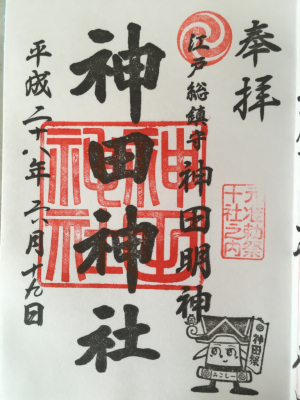 奉拝
江戸総鎮守 神田明神
神田神社
平成二十八年 月十九日
神田
神社
元准勅祭
十社之内
神田祭
みこしー